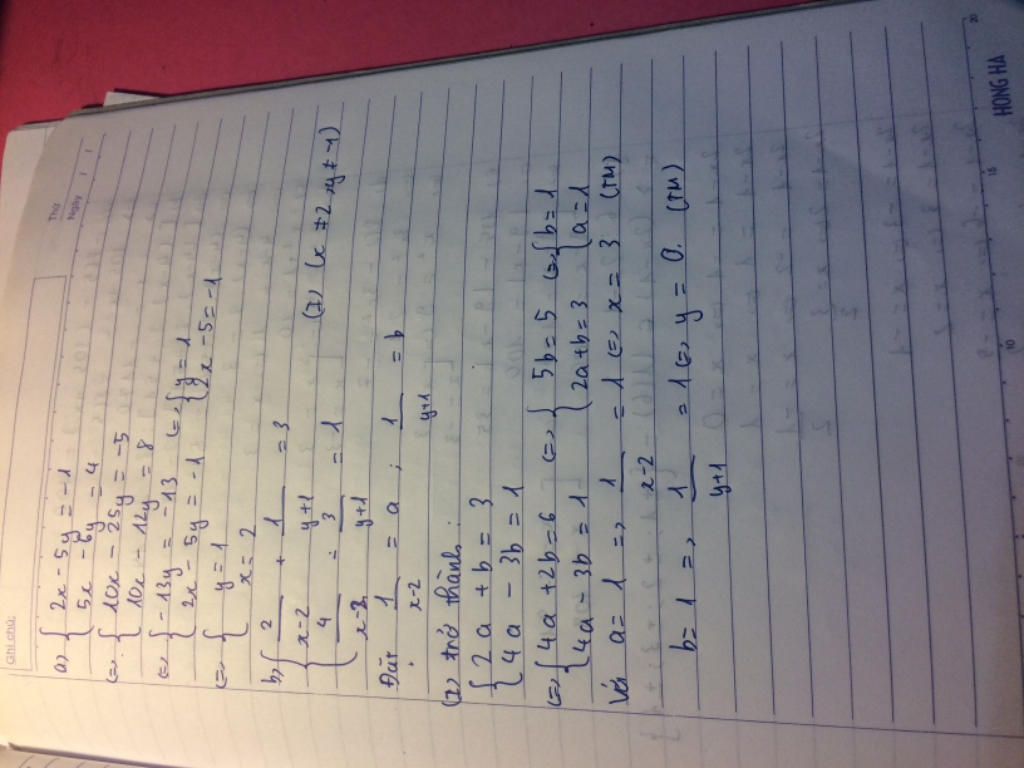 Ghi chú:
Thứ
Ngày / /
a, { 2x - 5y = -1
5x - 6y = 4
<=> { 10x - 25y = -5
10x - 12y = 8
<=> { -13y = -13 <=> { y = 1
2x - 5y = -1 2x - 5 = -1
<=> { y = 1
x = 2
b, { 2/x-2 + 1/y+1 = 3
4/x-2 - 3/y+1 = 1 (I) (x ≠ 2, y ≠ -1)
Đặt 1/x-2 = a ; 1/y+1 = b
(I) trở thành:
{ 2a + b = 3
4a - 3b = 1
<=> { 4a + 2b = 6 <=> { 5b = 5 <=> { b = 1
4a - 3b = 1 2a + b = 3 a = 1
Với a = 1 => 1/x-2 = 1 <=> x = 3 (TM)
b = 1 => 1/y+1 = 1 <=> y = 0. (TM)
10 15 20
HONG HA